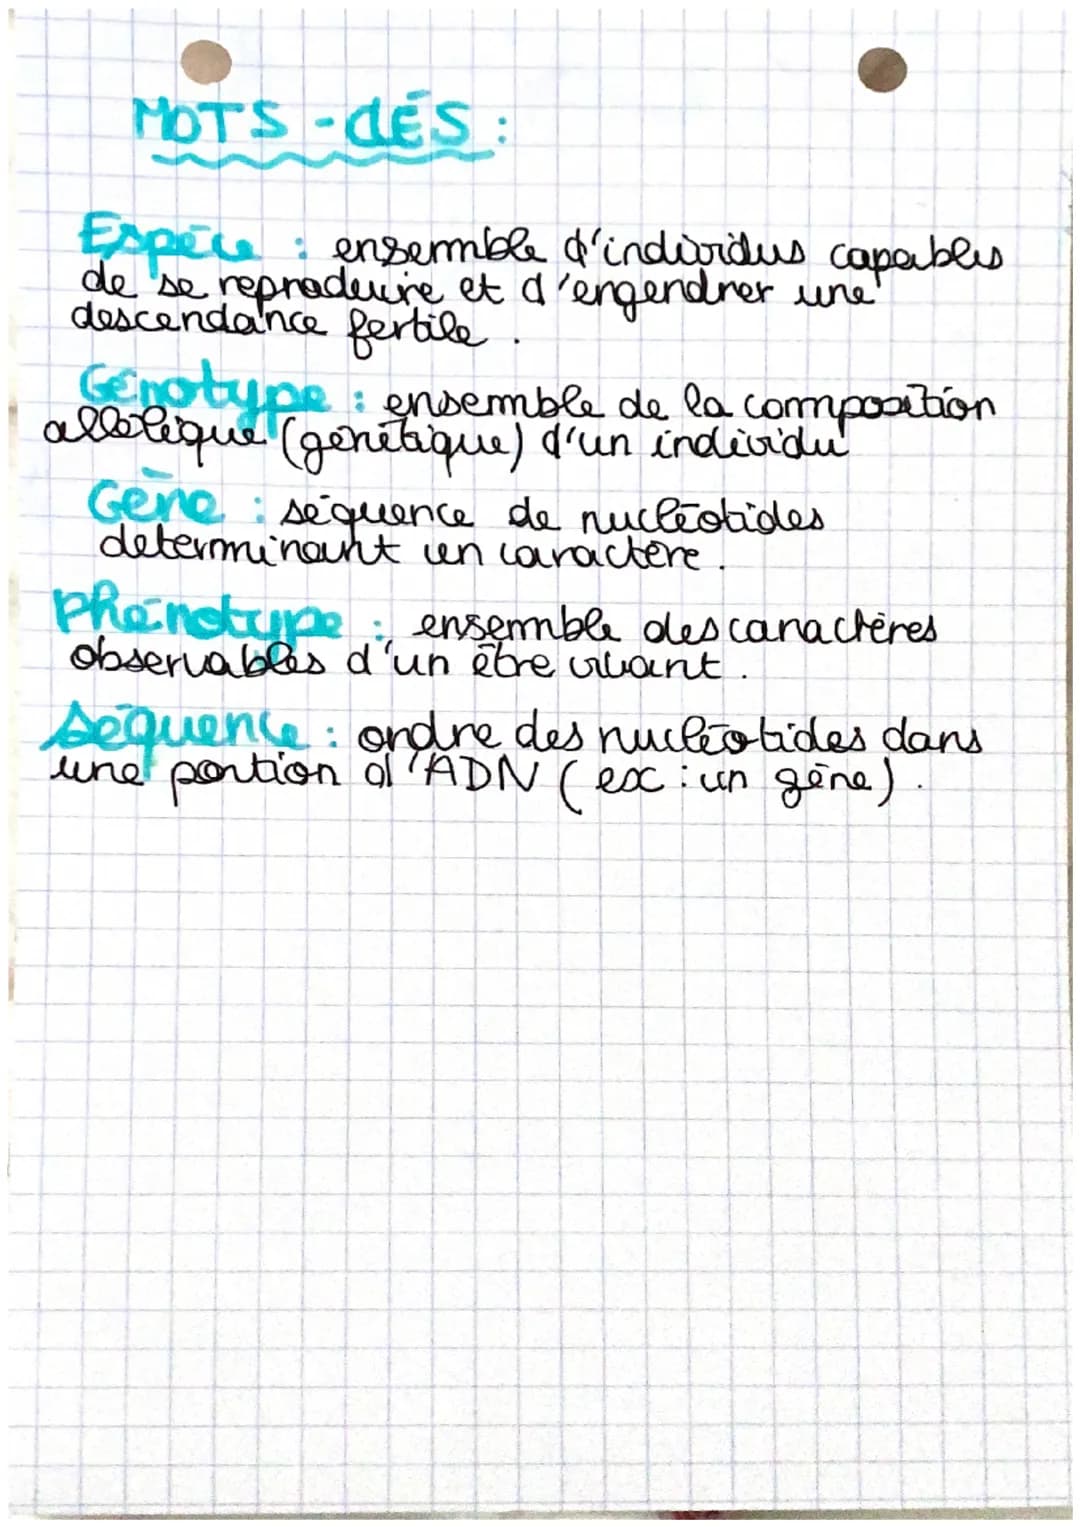 MOTS-CLÉS :
Espèce : ensemble d'individus capables
de se reproduire et d'engendrer une
descendance fertile.
Génotype : ensemble de la composition
allélique (génétique) d'un individu
Gène : séquence de nucléotides
determinant un caractère.
Phénotype : ensemble des caractères
observables d'un être vivant.
Séquence : ordre des nucléotides dans
une portion d'ADN (ex : un gène).